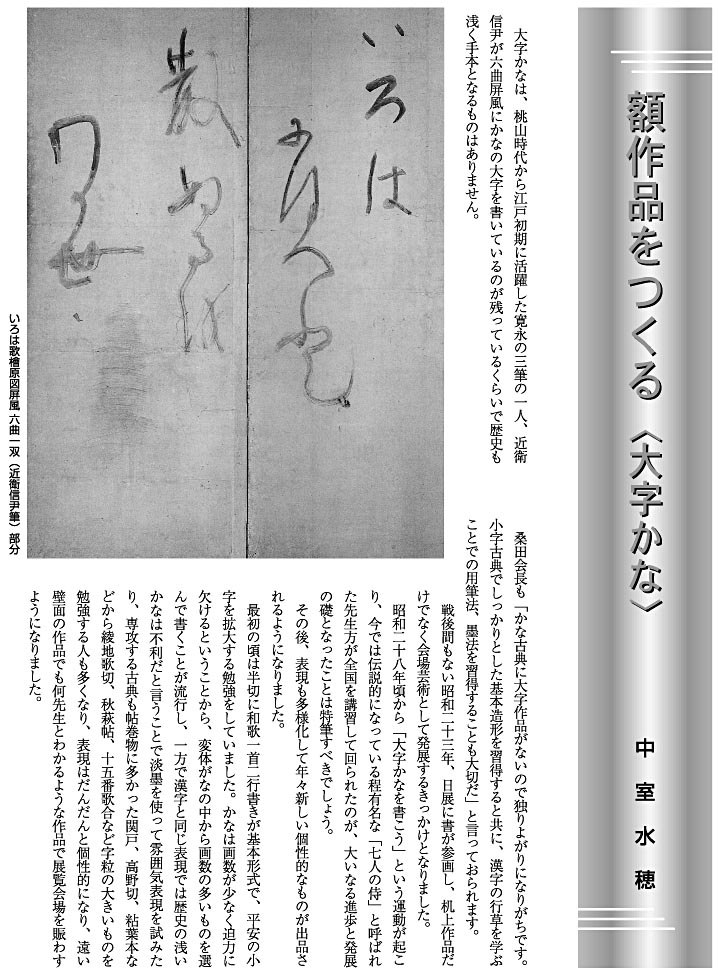 額作品をつくる〈大字かな〉
中室水穂
大字かなは、桃山時代から江戸初期に活躍した寛永の三筆の一人、近衛
信尹が六曲屏風にかなの大字を書いているのが残っているくらいで歴史も
浅く手本となるものはありません。
桑田会長も「かな古典に大字作品がないので独りよがりになりがちです。
小字古典でしっかりとした基本造形を習得すると共に、漢字の行草を学ぶ
ことでの用筆法、墨法を習得することも大切だ」と言っておられます。
戦後間もない昭和二十三年、日展に書が参画し、机上作品だ
けでなく会場芸術として発展するきっかけとなりました。
昭和二十八年頃から「大字かなを書こう」という運動が起こ
り、今では伝説的になっている程有名な「七人の侍」と呼ばれ
た先生方が全国を講習して回られたのが、大いなる進歩と発展
の礎となったことは特筆すべきでしょう。
その後、表現も多様化して年々新しい個性的なものが出品さ
れるようになりました。
最初の頃は半切に和歌一首二行書きが基本形式で、平安の小
字を拡大する勉強をしていました。かなは画数が少なく迫力に
欠けるということから、変体がなの中から画数の多いものを選
んで書くことが流行し、一方で漢字と同じ表現では歴史の浅い
かなは不利だと言うことで淡墨を使って雰囲気表現を試みた
り、専攻する古典も帖巻物に多かった関戸、高野切、粘葉本な
どから綾地歌切、秋萩帖、十五番歌合など字粒の大きいものを
勉強する人も多くなり、表現はだんだんと個性的になり、遠い
壁面の作品でも何先生とわかるような作品で展覧会場を賑わす
ようになりました。
いろは
散ぬる
わか世
いろは歌檜原図屏風 六曲一双（近衛信尹筆）部分